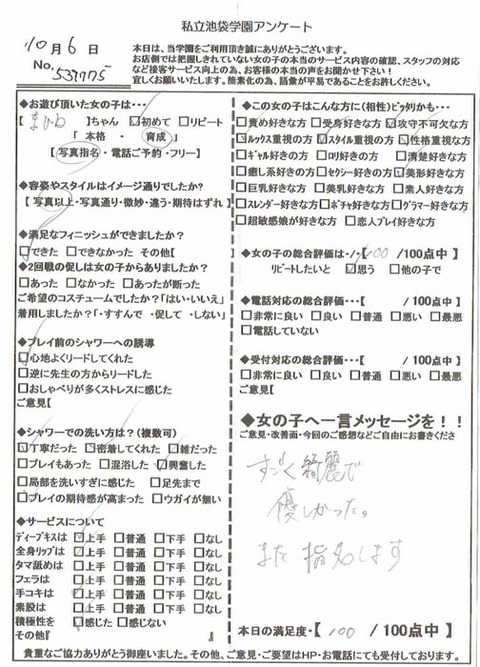 私立池袋学園アンケート
10月6日
No.537775
本日は、当学園をご利用頂き誠にありがとうございます。
お店側では把握しきれていない女の子の本当のサービス内容の確認、スタッフの対応
など接客サービス向上の為、お客様の本当の声をお聞かせ下さい！
宜しくお願いいたします。簡素化の為、語彙が平易であることをお許しください。
◆お遊び頂いた女の子は・・・
【 】ちゃん ☑初めて □リピート
「 本格 ・ 育成 」
【 写真指名 ・ 電話ご予約 ・ フリー 】
◆容姿やスタイルはイメージ通りでしたか?
【 写真以上 ・ 写真通り ・ 微妙 ・ 違う ・ 期待はずれ 】
◆満足なフィニッシュができましたか?
□できた □できなかった その他【 】
◆2回戦の促しは女の子からありましたか?
□あった □なかった □あったが断った
ご希望のコスチュームでしたか?「はい・いいえ」
着用しましたか?「・すすんで ・促して ・しない」
◆プレイ前のシャワーへの誘導
☑心地よくリードしてくれた
□逆に先生の方からリードした
□おしゃべりが多くストレスに感じた
ご意見【
◆シャワーでの洗い方は?(複数可)
☑丁寧だった ☑密着してくれた □雑だった
□プレイもあった □混浴した ☑興奮した
□局部を洗いすぎに感じた □足先まで
□プレイの期待感が高まった □ウガイが無い
◆サービスについて
ディープキスは ☑上手 □普通 □下手 □なし
全身リップは ☑上手 □普通 □下手 □なし
タマ舐めは □上手 □普通 □下手 □なし
フェラは □上手 □普通 □下手 □なし
手コキは □上手 □普通 □下手 □なし
素股は □上手 □普通 □下手 □なし
積極性を □感じた □感じない
その他『 』
◆この女の子はこんな方に(相性)ピッタリかも・・・
□責め好きな方 □受身好きな方 ☑攻守不可欠な方
☑ルックス重視の方 ☑スタイル重視の方 ☑性格重視な方
□ギャル好きの方 □ロリ好きの方 □清楚好きな方
□癒し系好きの方 □セクシー好きの方 ☑美形好きな方
□巨乳好きな方 □美乳好きな方 □素人好きな方
□スレンダー好きな方 □ポチャ好きな方 □グラマー好きな方
□超敏感娘が好きな方 □恋人プレイ好きな方
◆女の子の総合評価は・・・【 100 /100点中 】
リピートしたいと ☑思う □他の子で
◆電話対応の総合評価・・・【 /100点中 】
□非常に良い □良い □普通 □悪い □最悪
□電話していない
◆受付対応の総合評価・・・【 /100点中 】
□非常に良い □良い □普通 □悪い □最悪
ご意見【
◆女の子へ一言メッセージを！！
ご意見・改善面・今回のご感想などご自由にお書きくださ
すごく綺麗で
優しかった。
また指名します
本日の満足度・【 100 /100点中】
貴重なご協力ありがとう御座いました。その他、ご意見・ご要望はHP・お電話にても受付しております。